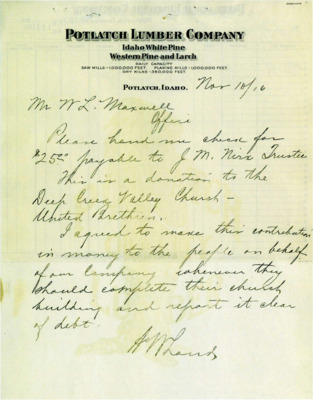 POTLATCH LUMBER COMPANY
Idaho White Pine
Western Pine and Larch
DAILY CAPACITY
SAW MILLS - 1,000,000 FEET. PLANING MILLS - 1,000,000 FEET.
DRY KILNS - 350,000 FEET.
POTLATCH, IDAHO. Nov 10/16
Mr W L. Maxwell
Office
Please hand me check for
$25.00 payable to J M. Trustee
This is a donation to the
Deep Creek Valley Church -
United Brethren.
I agreed to make this contribution
in money to the people on behalf
of our Company whenever they
should complete their church
building and report it clear
of debt.